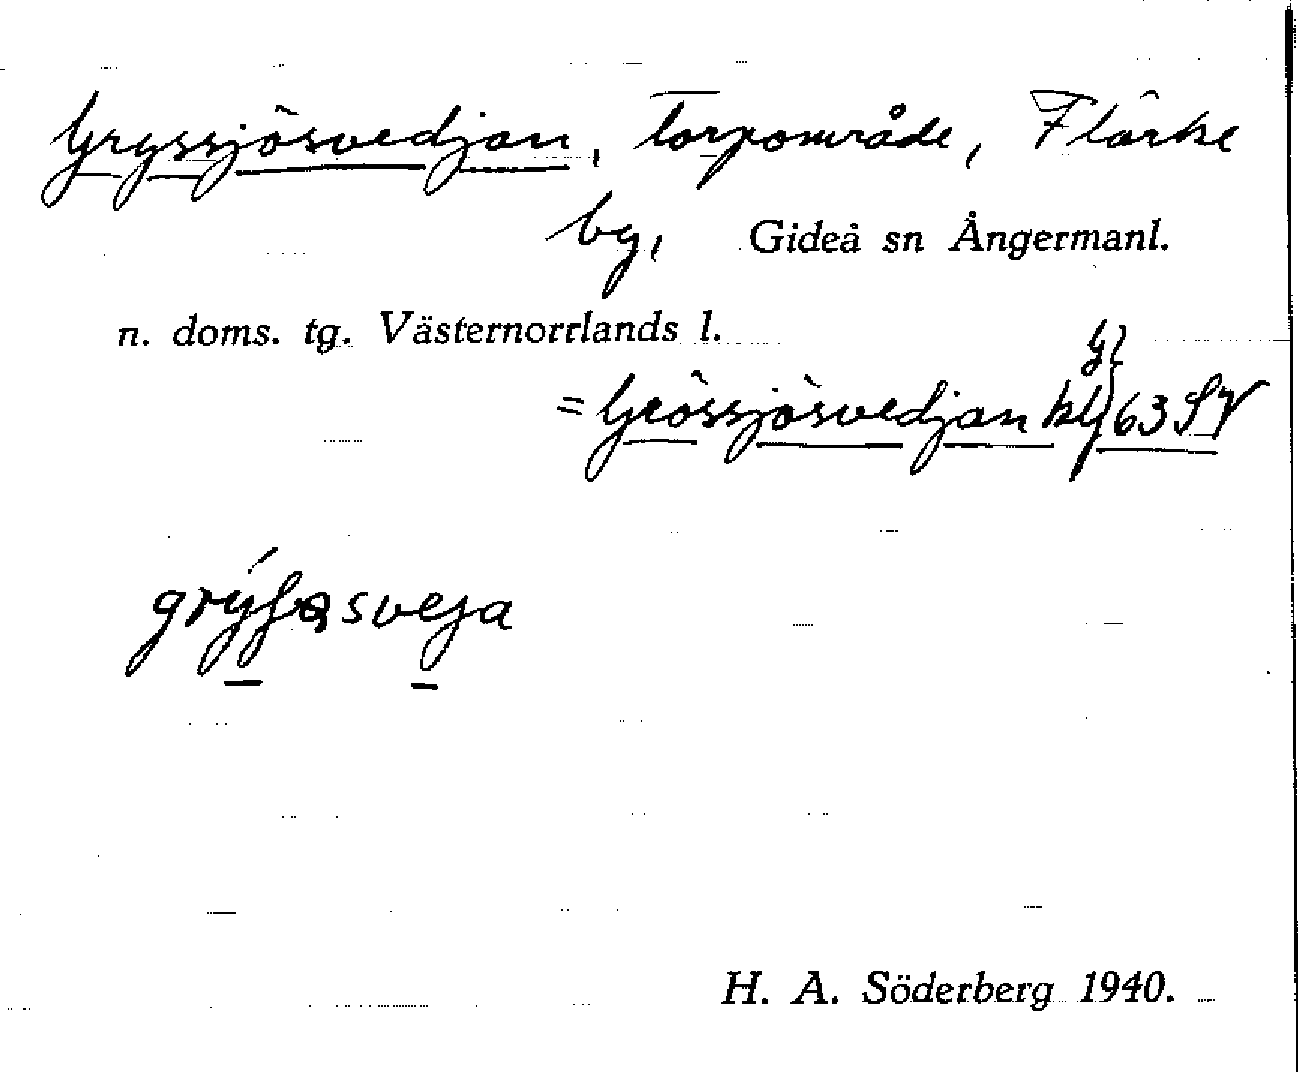 Gryssjösvedjan, Torpområde, Flärke
by, Gideå sn Ångermanl.
n. doms. tg. Västernorrlands l.
= Grössjösvedjan 63 SV
H. A. Söderberg 1940.